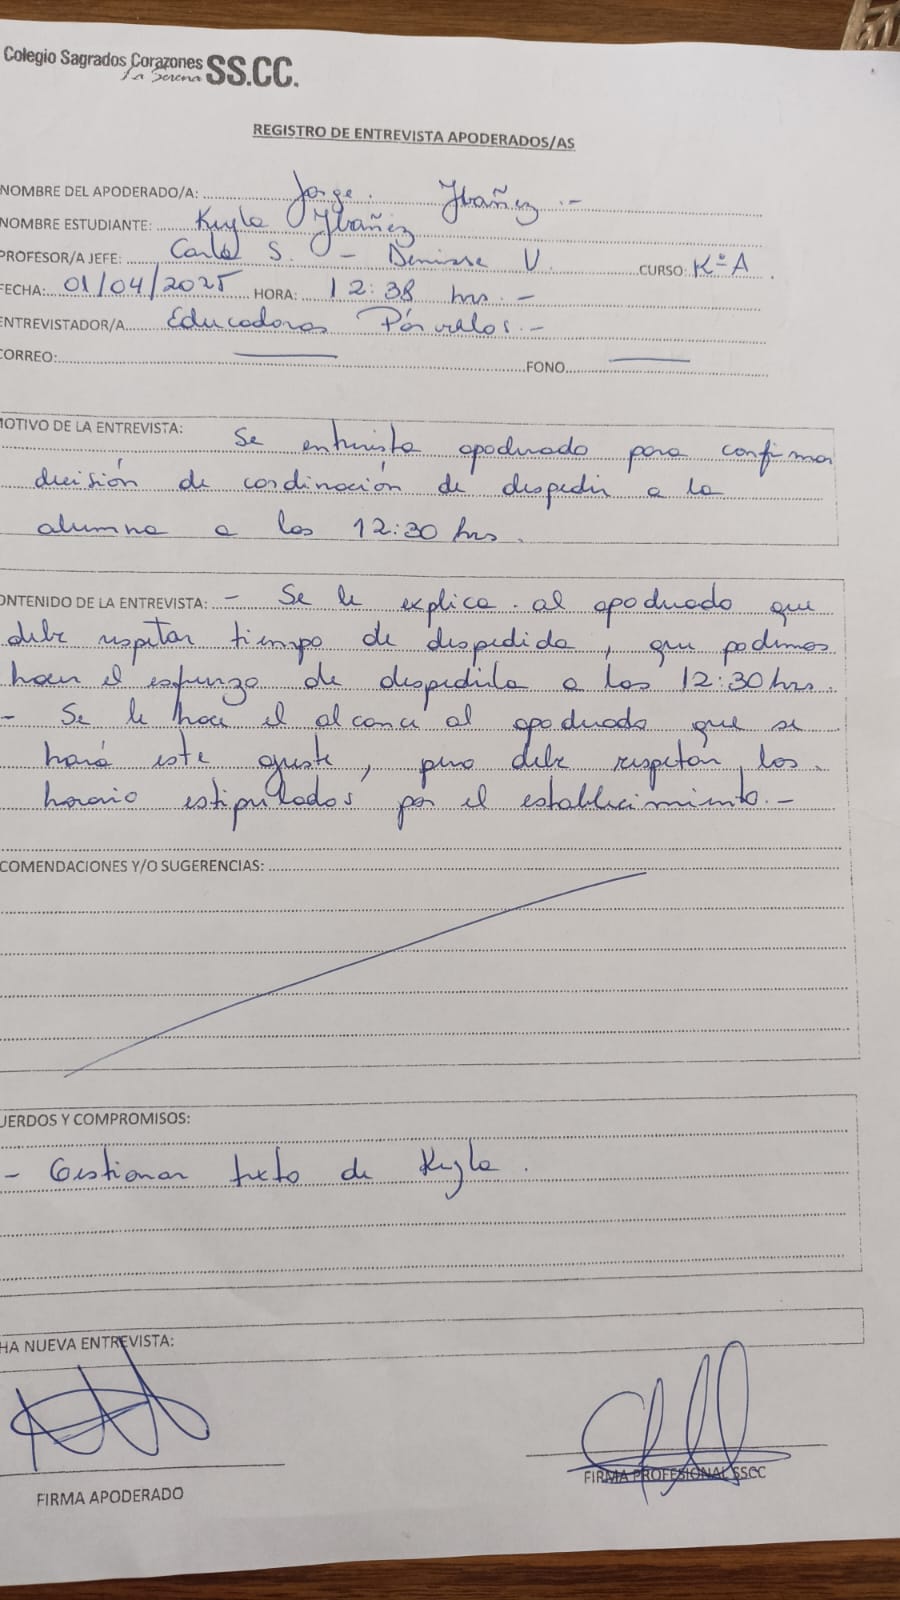 Colegio Sagrados Corazones SS.CC.
La Serena
REGISTRO DE ENTREVISTA APODERADOS/AS
NOMBRE DEL APODERADO/A: Jorge Ybañez.-
NOMBRE ESTUDIANTE: Keyla Ybañez
PROFESOR/A JEFE: Carla S. - Denisse V. CURSO: Kº A.
FECHA: 01/04/2025 HORA: 12:38 hrs.-
ENTREVISTADOR/A Educadoras Párvulos.-
CORREO: FONO
MOTIVO DE LA ENTREVISTA: Se entrevista apoderado para confirmar
decisión de cordinación de despedir a la
alumna a las 12:30 hrs.
ONTENIDO DE LA ENTREVISTA: - Se le explica al apoderado que
debe respetar tiempo de despedida, que podemos
hacer el esfuerzo de despedirla a las 12:30 hrs.
- Se le hace el alcance al apoderado que se
hará este ajuste, pero debe respetar los
horario estipulados por el establecimiento.-
COMENDACIONES Y/O SUGERENCIAS:
UERDOS Y COMPROMISOS:
- Gestionar texto de Keyla.
HA NUEVA ENTREVISTA:
FIRMA APODERADO
FIRMA PROFESIONAL SSCC